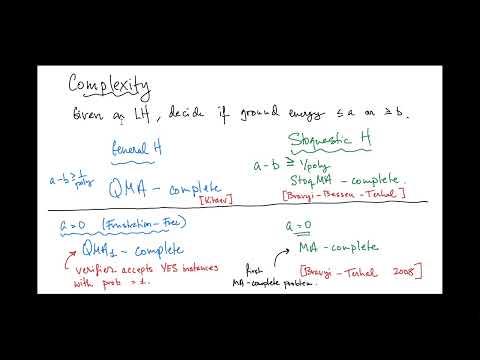 Complexity
Given an LH, decide if ground energy ≤ a or ≥ b.
General H
Stoquastic H
a-b ≥ 1/poly
QMA - complete
[Kitaev]
a-b ≥ 1/poly
StoqMA - complete.
[Bravyi-Bessen-Terhal]
a=0 (Frustration-Free)
QMA1 - complete
verifier accepts YES instances
with prob = 1.
a=0
MA - complete
first
MA-complete problem.
[Bravyi - Terhal 2008]